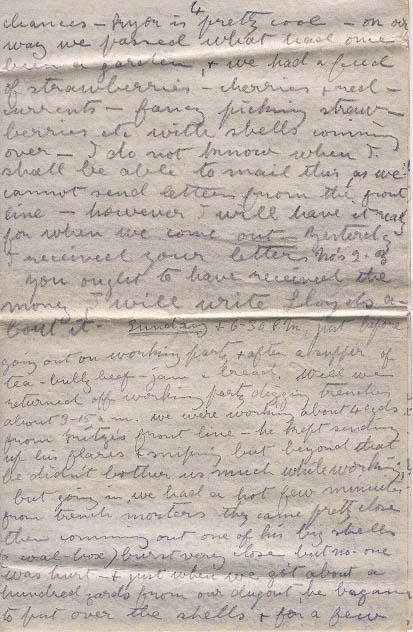 4
chances – Pryor is pretty cool – on our
way we passed what had once
been a garden, & we had a feed
of strawberries – cherries & red-
currents – fancy picking straw-
berries etc with shells comming
over – I do not know when I
shall be able to mail this as we
cannot send letters from the front
line – however I will have it ready
for when we come out – Yesterday
I received your letters Nos 2 & 3
You ought to have received the
money, I will write Lloyds a-
bout it. Sunday & 6-30 P.M., just before
going out on working party & after a supper of
tea – bully beef – jam & bread. Well we
returned off working party digging trenches
about 3-15 a.m. we were working about yds
from Fritz's front line – he kept sending
up his flares & sniping but beyond that
he didn't bother us much while working,
but going in we had a hot few minutes
from trench mortars they came pretty close
then comming out one of his big shells
(a coal-box) burst very close but no one
was hurt – & just when we got about a
hundred yards from our dugout he began
to put over the shells & for a few